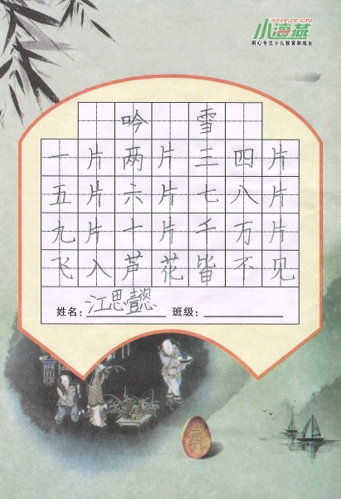 XHYJY.CN
小海燕
用心专注少儿教育和成长
吟雪
一片两片三四片
五片六片七八片
九片十片千万片
飞入芦花皆不见
姓名：江思懿 班级：